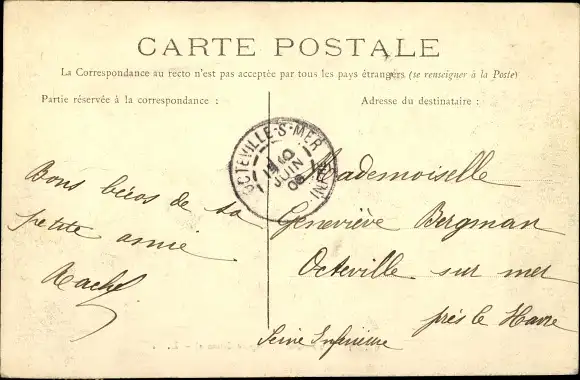 CARTE POSTALE
La Correspondance au recto n'est pas acceptée par tous les pays étrangers (se renseigner à la Poste)
Partie réservée à la correspondance :
Adresse du destinataire :
OCTEVILLE-S-MER
10
JUIN
08
Bons béros de ta
petite amie
Rachel
Mademoiselle
Geneviève Bergman
Octeville sur mer
près le Havre
Seine Inférieure